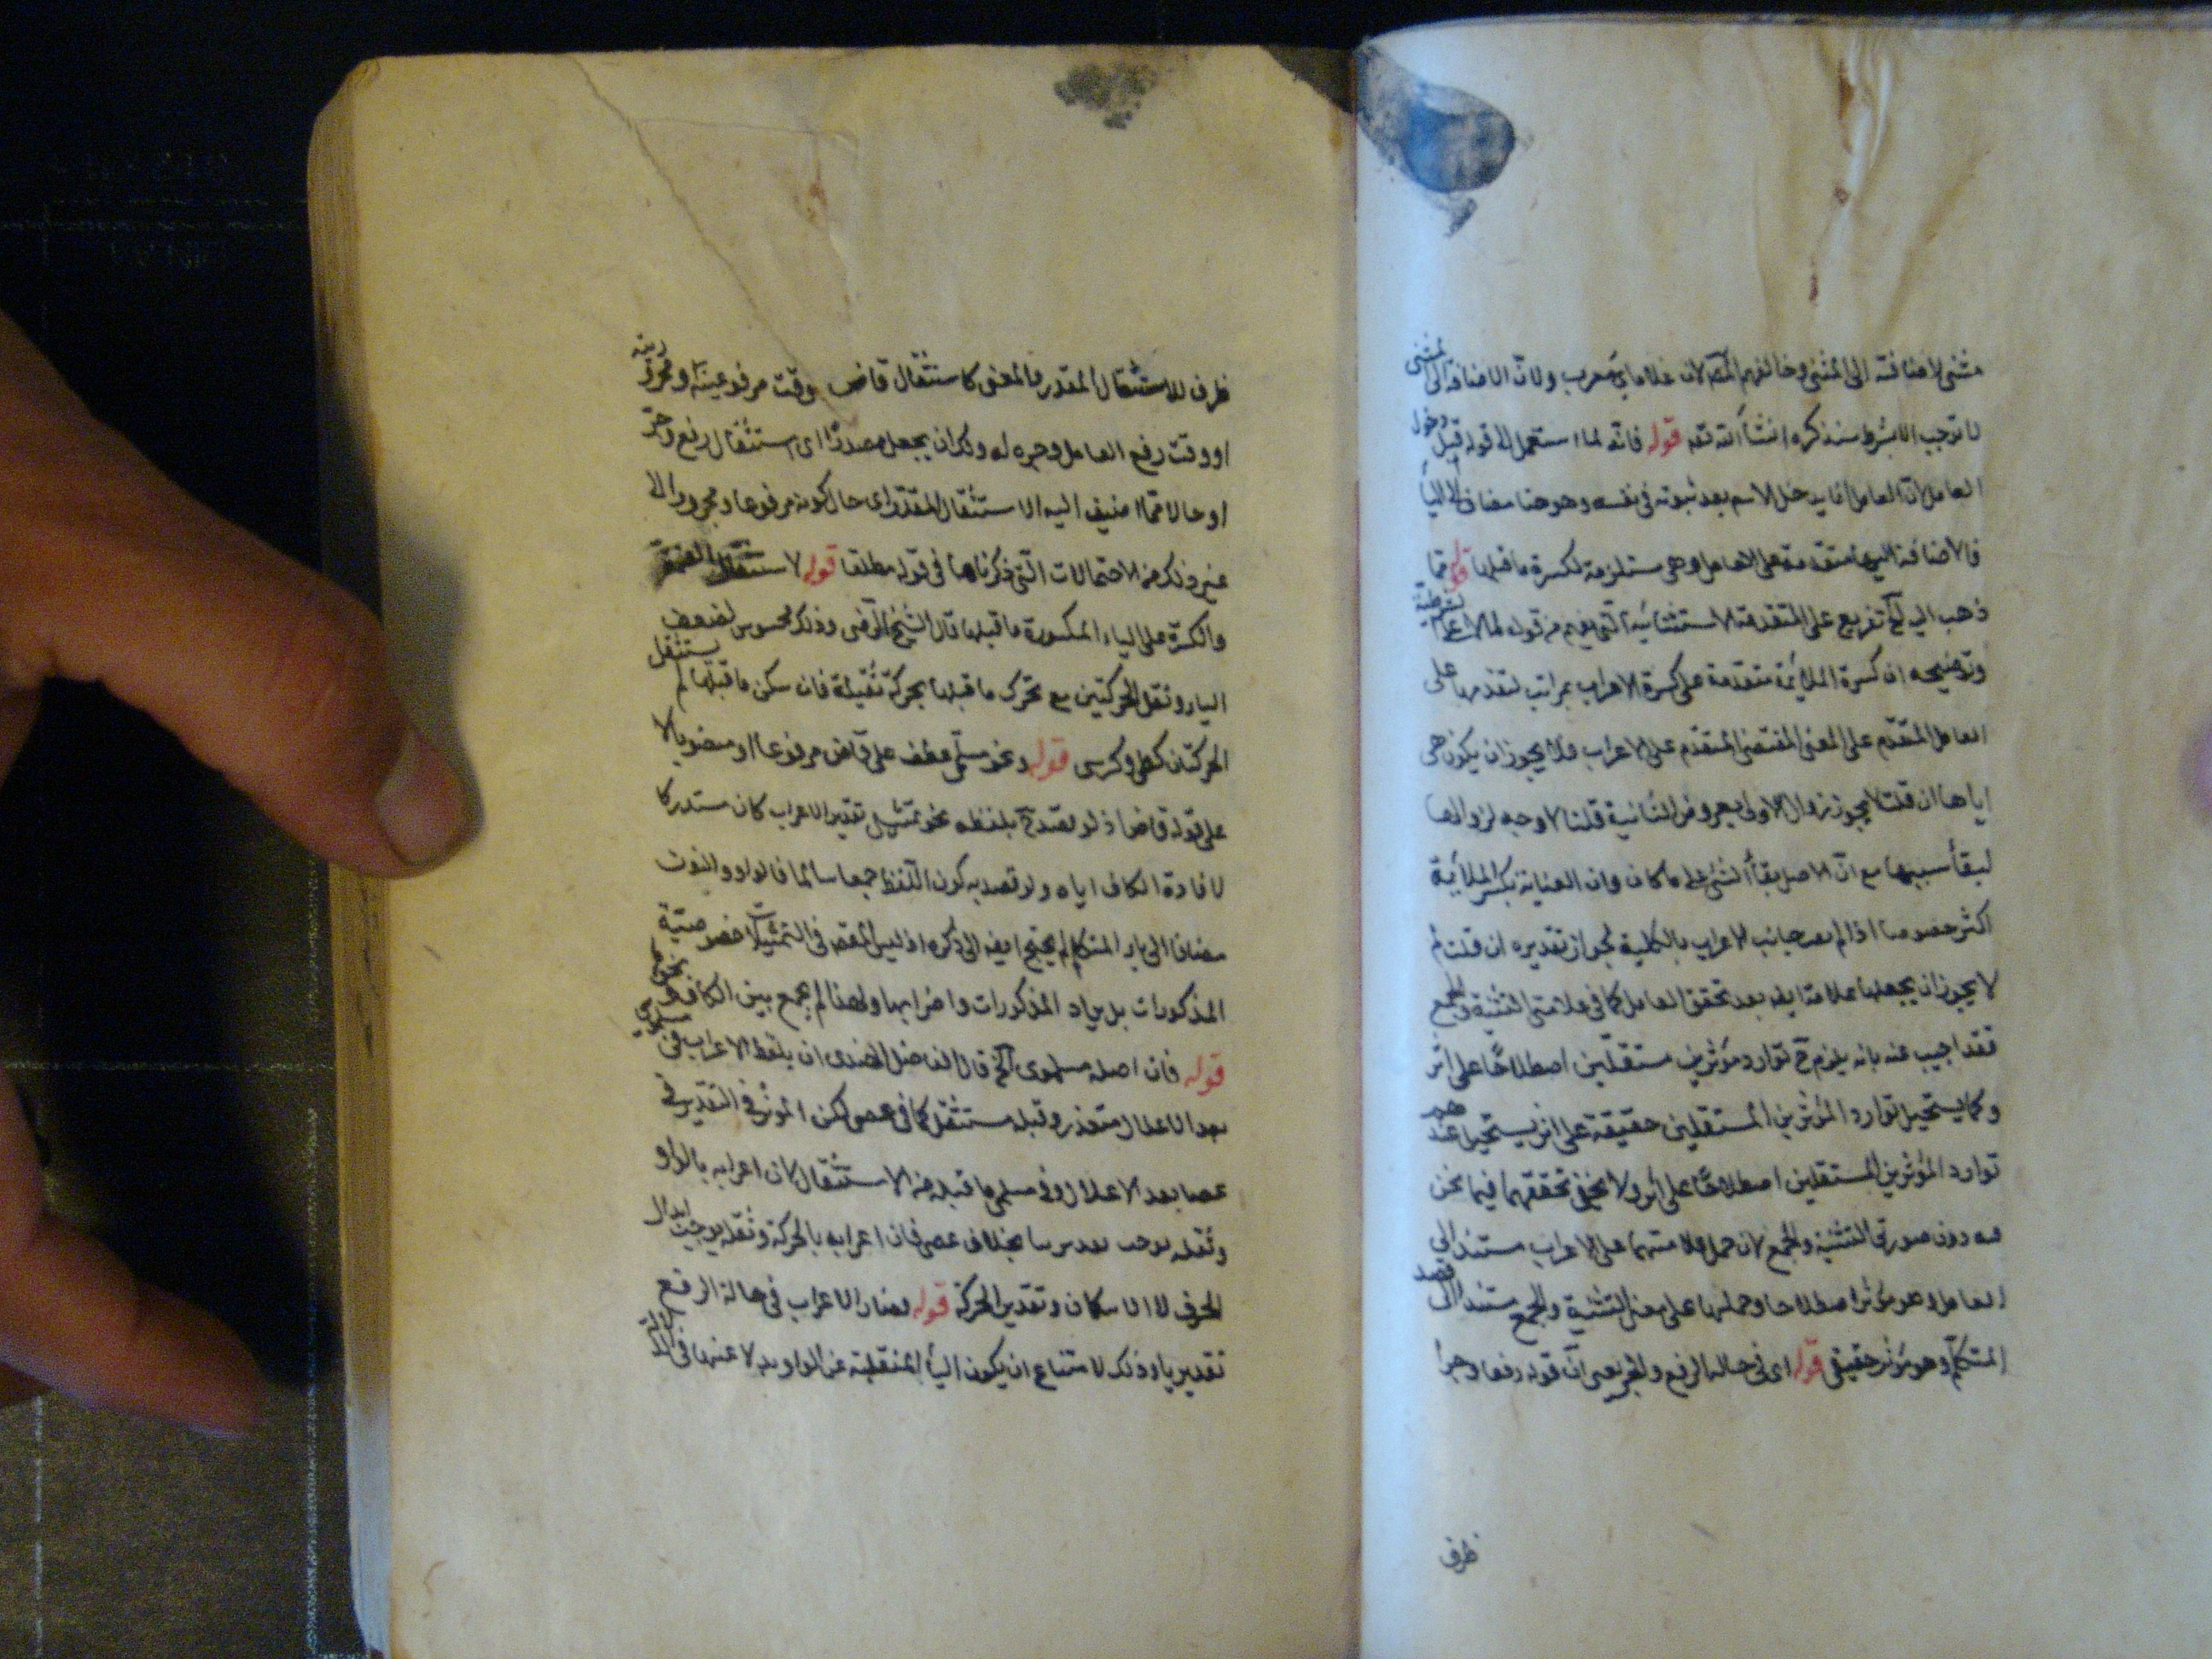 مبنى لاضافته الى المبنى وخالفهم المص لان غلامای معرب ولان الاضافة الى المبنى
لا توجب الا بشرط سنذكره انشأ الله تعه قوله فانه لما استعمل الى قوله قبل دخول
العامل لان العامل انما يدخل الاسم بعد ثبوته فى نفسه وهو هنا مضاف الى اليأ
فالاضافة اليها متقدمة على العامل وهى مستلزمة لكسرة ما قبلها قوله فما
ذهب اليه الخ تفريع على المتقدمة الاستثنائية التى يفهم من قوله لما
وتوضيحه ان كسرة الملائمة متقدمة على كسرة الاعراب بمراتب لتقدمها على
العامل المتقدم على المعنى المقتضى المتقدم على الاعراب فلا يجوز ان يكون هى
اياها ان قلت لا يجوز زوال الاولى بعروض الثانية قلنا لا وجه لزوالها
لبقأ سببها مع ان الاصل بقأ الشئ على ما كان وان العناية بكسر الملائمة
اكثر خصوصا اذا لم يصر جانب الاعراب بالكلية لجواز تقديره ان قلت لم
لا يجوز ان يجعلها علامة ايضه بعد تحقق العامل كما فى علامتى التثنية والجمع
فقد اجيب عنه بانه يلزم ح توارد مؤثرين مستقلين اصطلاحًا على اثر
وكما يستحيل توارد المؤثرين المستقلين حقيقة على اثر يستحيل عندهم
توارد المؤثرين المستقلين اصطلاحًا على اثر ولا يخفى تحققهما فيما نحن
فيه دون صورتى التثنية والجمع لان حمل علامتهما على الاعراب مستند الى
العامل وهو مؤثر اصطلاحا وحملها على معنى التثنية والجمع مستند الى قصد
المتكلم وهو مؤثر حقيقى قوله اى فى حالة الرفع والجر يعنى ان قوله رفعا وجرا
ظرف
ظرف للاستثقال المقدر فالمعنى كاستثقال قاض وقت مرفوعيته ومجروريته
او وقت رفع العامل وجره له ولك ان يجعل مصدرًا اى استثقال رفع وجر
او حالا مما اضيف اليه الاستثقال المقدر اى حال كونه مرفوعا ومجرورا الى
غير ذلك من الاحتمالات التى ذكرناها فى قوله مطلقا قوله لاستثقال الضمة
والكسرة على الياء المكسورة ما قبلها قال الشيخ الرضى وذلك محسوس لضعف
اليا وثقل الحركتين مع تحرك ما قبلها بحركة ثقيلة فان سكن ما قبلها لم يستثقل
الحركتان كظبى وكرسى قوله ونحو مسلمى عطف على قاض مرفوعا او منصوبا لا
على قوله قاض اذ لو لم يقصد تمثيل تقدير الاعراب كان مستدركا
لافادة الكاف اياه ولو قصد به كون اللفظ جمعا سالما فالواو والنون
مضافا الى يا المتكلم لم يحتج ايضه الى ذكره اذ ليس المقصه فى التمثيلات خصوصية
المذكورات بل يراد المذكورات واضرابها ولهذا لم يجمع بين الكاف ونحو
قوله فان اصله مسلموى الخ قال الفاضل الهندى ان يلفظ الاعراب فى مسلموى
بعد الاعلال متعذر وقبله مستثقل كما فى عصى لكن المؤثر فى التقدير فى
عصا بعد الاعلال وفى مسلمى ما قبله من الاستثقال لان اعرابه بالواو
وثقله يوجب بخلاف عصى فان اعرابه بالحركة وثقله يوجب ابدال
الحرف لا الاسكان وتقدير الحركة قوله فصار الاعراب فى حالة الرفع
تقديريا وذلك لامتناع ان يكون اليأ المنقلبة عن الواو بدلا عنها فى الدلالة